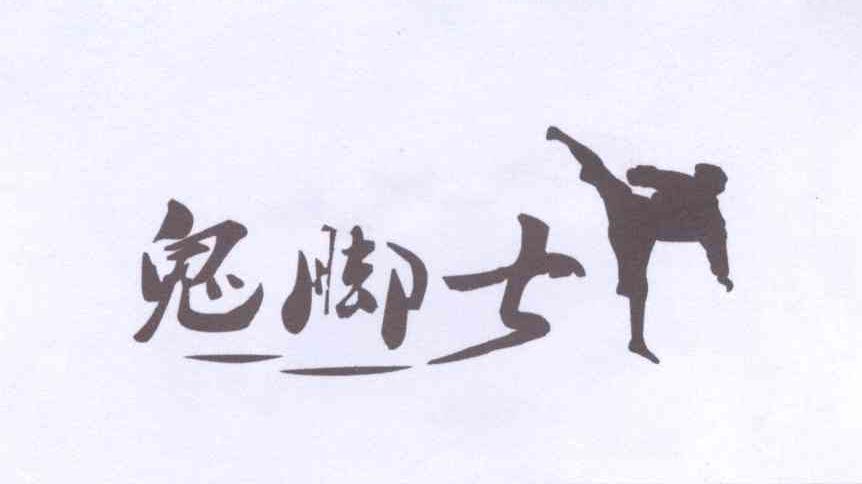 鬼脚七